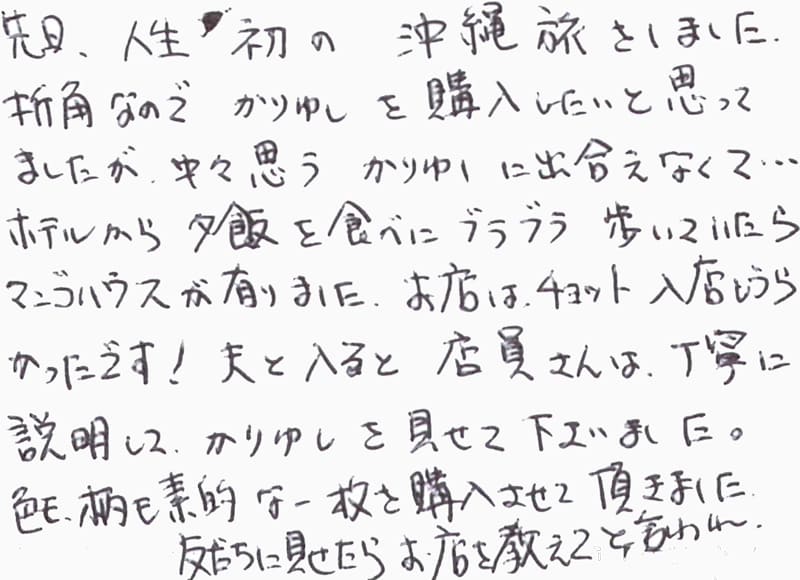 先日、人生初の 沖縄旅をしました.
折角なので かりゆしを購入したいと思って
ましたが、中々思う かりゆしに出合えなくて…
ホテルから 夕飯を食べに ブラブラ 歩いていたら
マンゴハウスが有りました. お店は、チョット 入店しづら
かったです! 夫と入ると 店員さんは、丁寧に
説明して、かりゆしを見せて下さいました。
色も、柄も素的な一枚を購入させて頂きました.
友だちに見せたらお店を教えてと言われ.